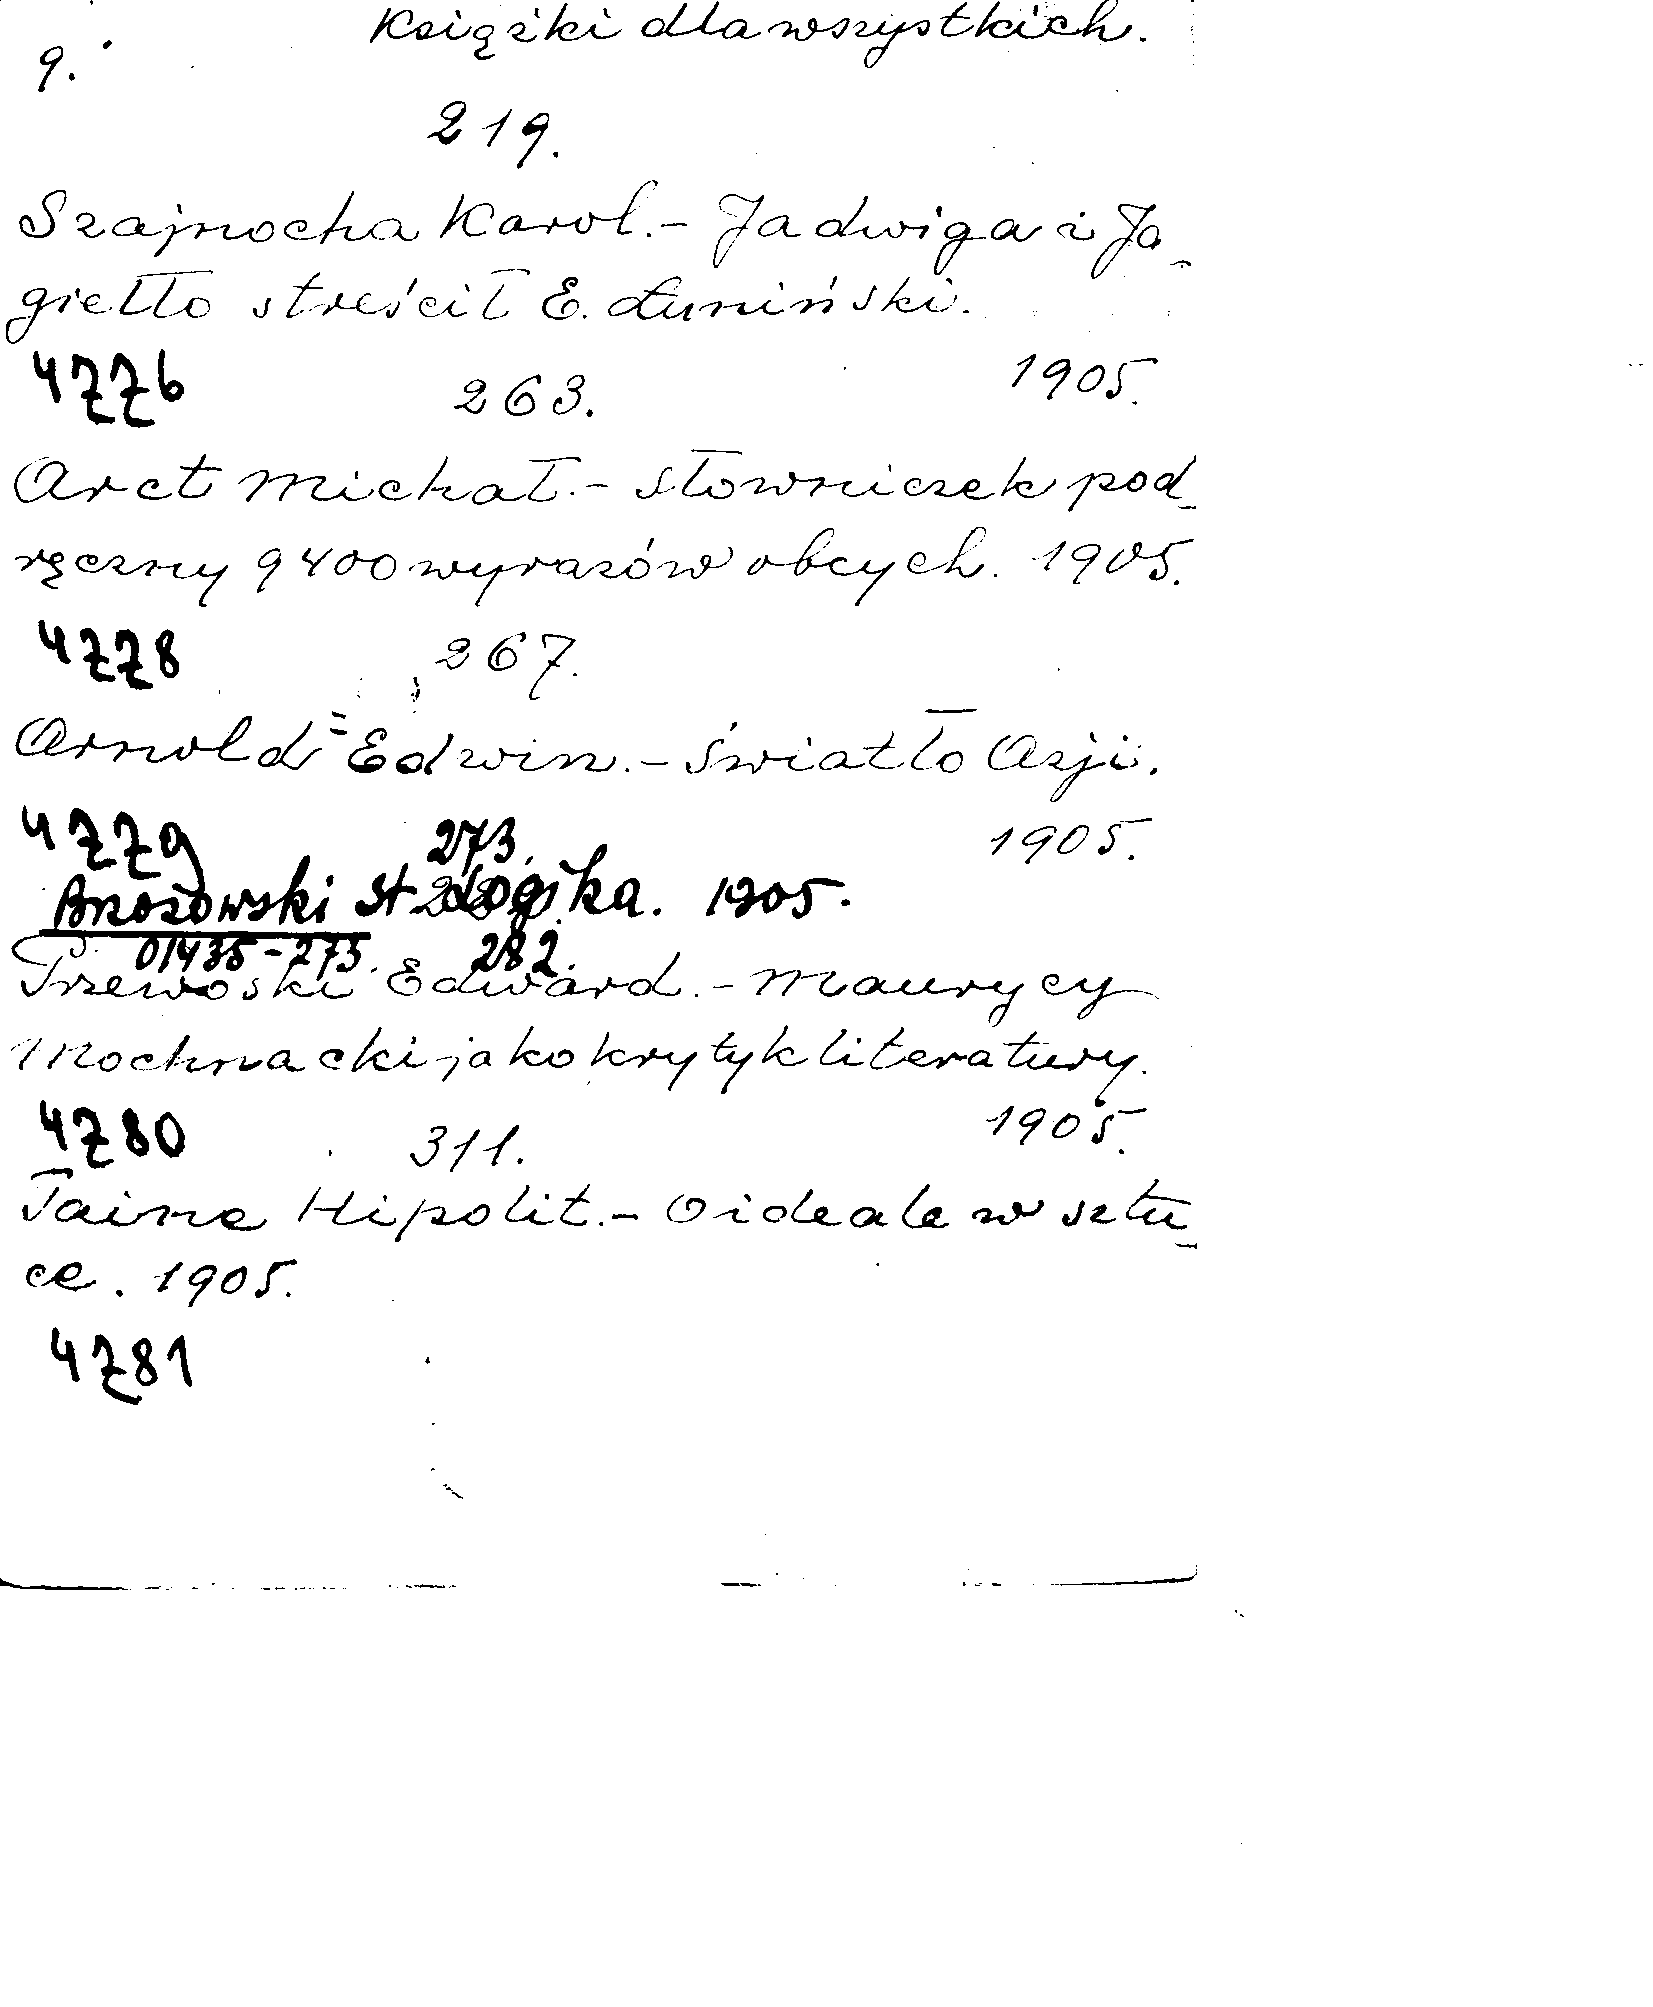 Książki dla wszystkich.
9.
219.
Szajnocha Karol.- Jadwiga i Ja-
giełło streścił E. Łuniński.
4776 263. 1905.
Arct Michał.- Słowniczek pod-
ręczny 9400 wyrazów obcych. 1905.
4778 267.
Arnold = Edwin.- Światło Azji.
4779 273. 1905.
Brzozowski St. Logika. 1905.
01435-273. 282.
Przewoski Edward.- Maurycy
Mochnacki jako krytyk literatury.
4780 311. 1905.
Taine Hipolit.- O ideale w sztu-
ce. 1905.
4781